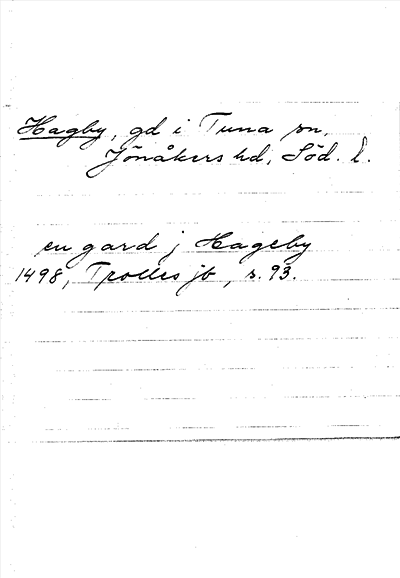 Hagby, gd i Tuna sn,
Jönåkers hd, Söd. l.
en gard j Hageby
1498, Trolles jb, s. 93.